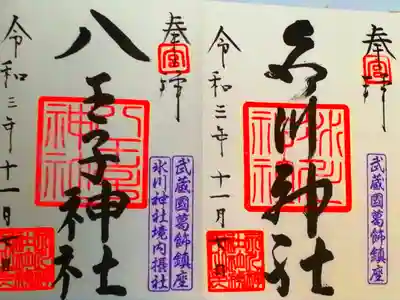 奉拝
氷川神社
令和三年十一月
武蔵國葛飾鎮座
奉拝
八王子神社
令和三年十一月
武蔵國葛飾鎮座
氷川神社境内摂社